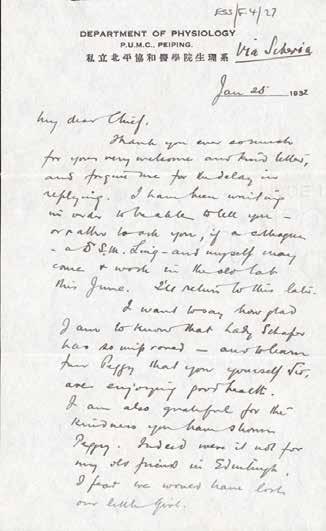 ESS/F.4/27
DEPARTMENT OF PHYSIOLOGY
P.U.M.C., PEIPING.
系理生院學醫和協平北立私
Via Siberia
Jan 25 1932
My dear Chief,
Thank you ever so much
for your very welcome and kind letter,
and forgive me for the delay in
replying. I have been waiting
in order to be able to tell you –
or rather to ask you, if a colleague
– a Dr S.M. Ling – and myself may
come & work in the old lab
this June. I'll return to this later.
I want to say how glad
I am to know that Lady Schafer
has so improved – and to learn
from Peggy that you yourself Sir,
are enjoying good health.
I am also grateful for the
kindness you have shown
Peggy. Indeed were it not for
my old friend in Edinburgh,
I fear we would have lost
our little Girl.